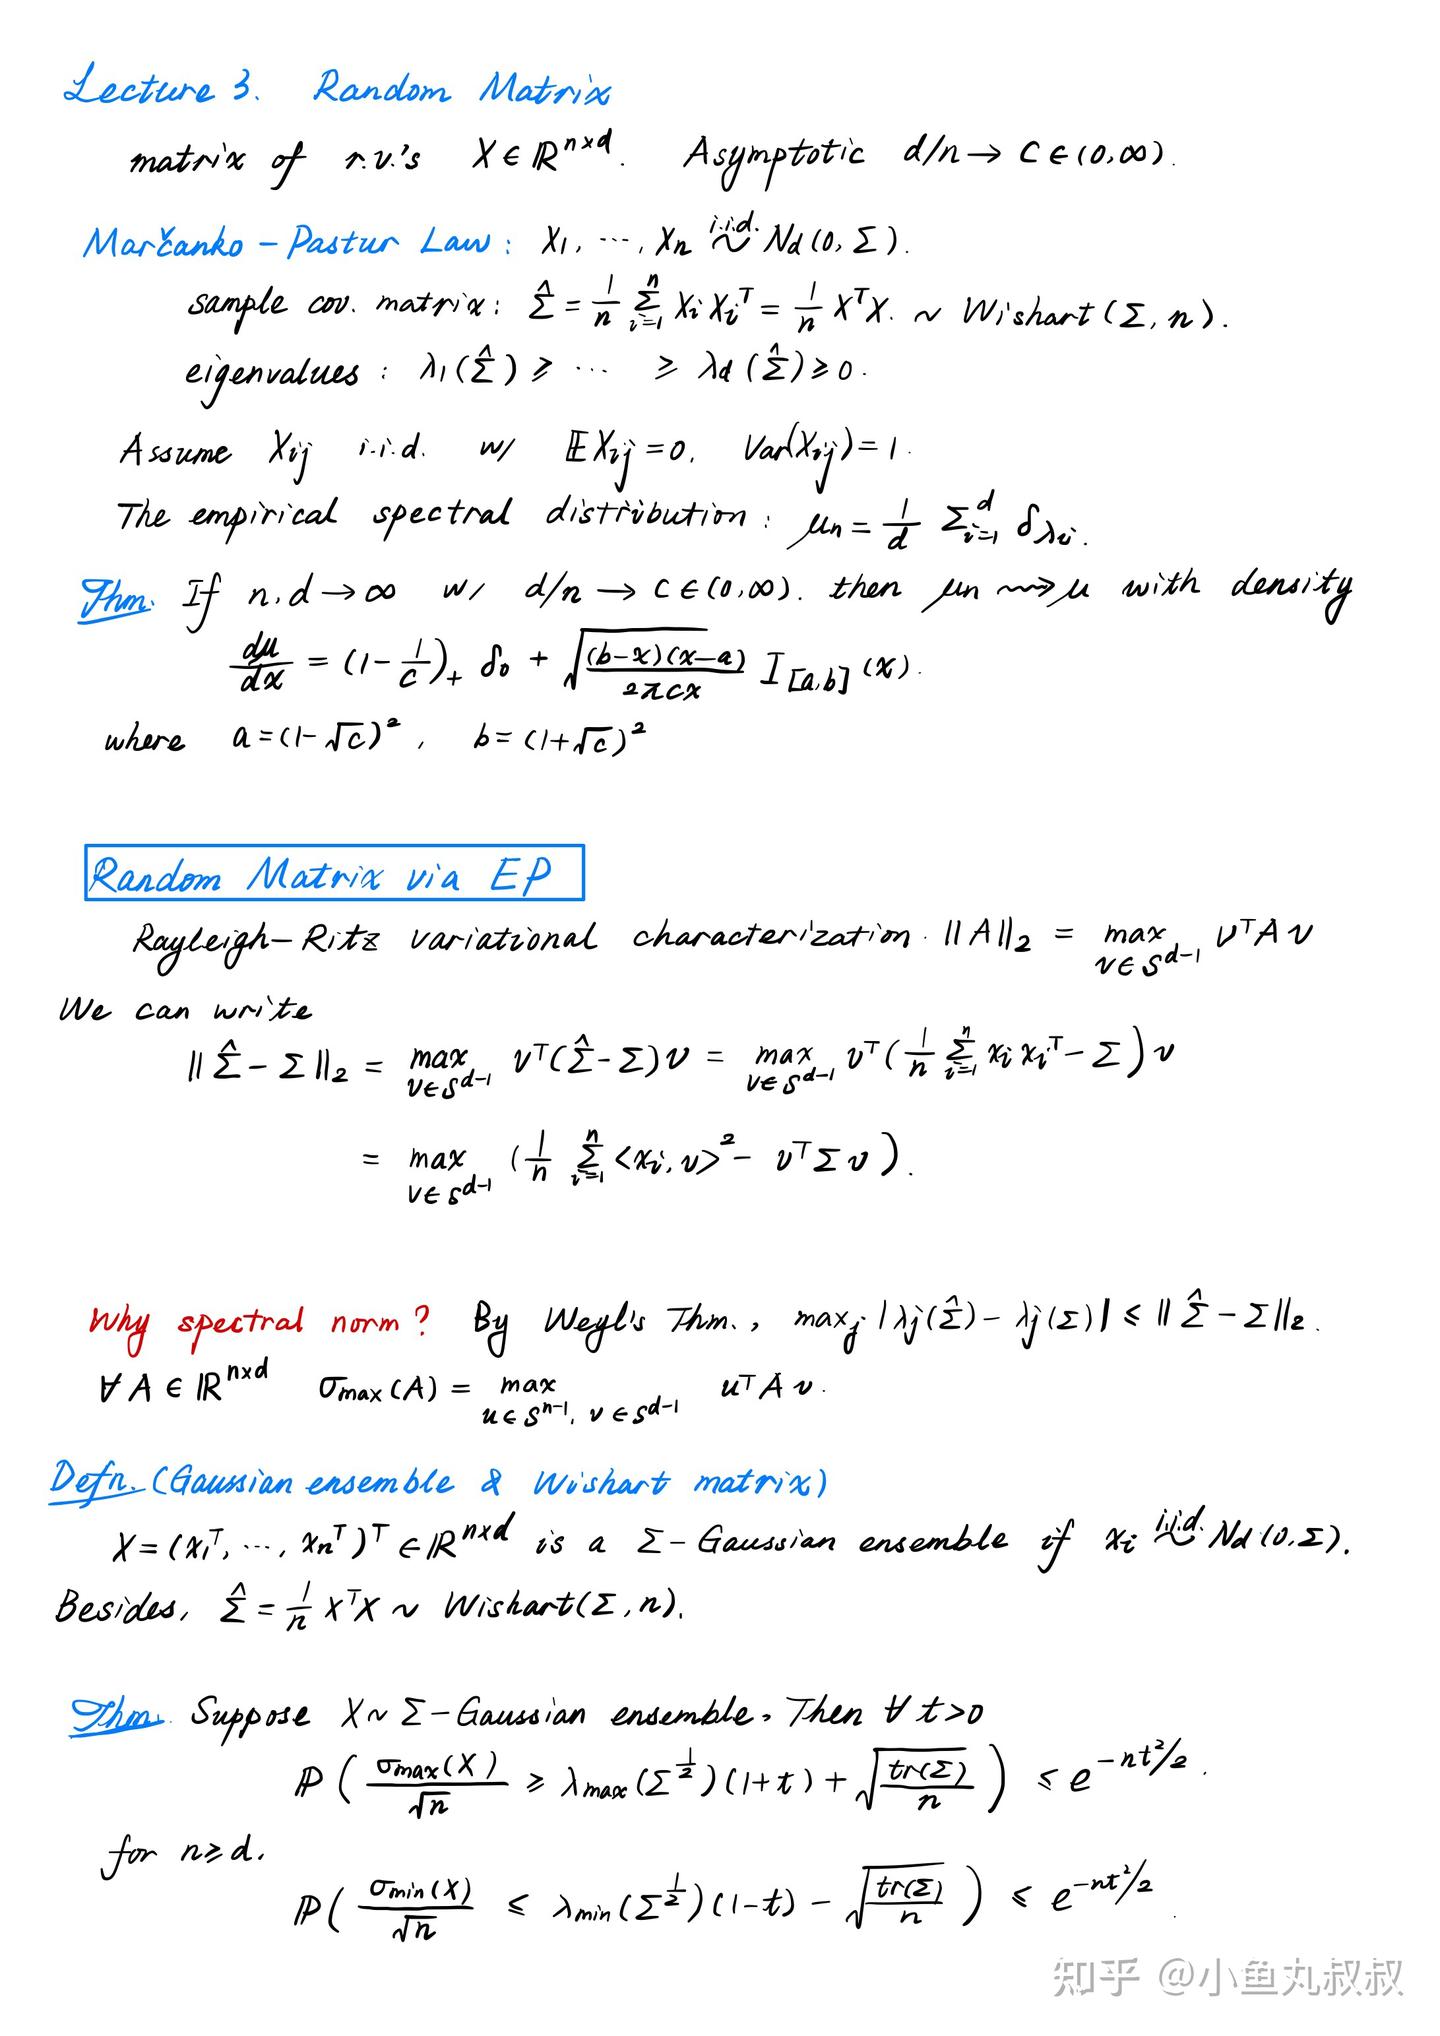 Lecture 3. Random Matrix
matrix of r.v.'s X ∈ ℝ^{n×d}. Asymptotic d/n → C ∈ (0,∞).
Marčanko - Pastur Law: X₁, ⋯, Xₙ \overset{i.i.d.}{∼} N_d(0, Σ).
sample cov. matrix: \hat{Σ} = \frac{1}{n} \sum_{i=1}^{n} X_i X_i^T = \frac{1}{n} X^T X. ∼ Wishart(Σ, n).
eigenvalues: λ₁(\hat{Σ}) ≥ ⋯ ≥ λ_d(\hat{Σ}) ≥ 0.
Assume X_{ij} i.i.d. w/ 𝔼X_{ij} = 0, Var(X_{ij}) = 1.
The empirical spectral distribution: μ_n = \frac{1}{d} Σ_{i=1}^{d} δ_{λ_i}.
Thm. If n, d → ∞ w/ d/n → C ∈ (0,∞). then μ_n ⇝ μ with density
\frac{dμ}{dx} = (1 - \frac{1}{c})_+ δ_0 + \sqrt{\frac{(b-x)(x-a)}{2πcx}} I_{[a,b]}(x).
where a = (1-√c)², b = (1+√c)²
Random Matrix via EP
Rayleigh-Ritz variational characterization. ‖A‖₂ = \max_{v∈S^{d-1}} v^T A v
We can write
‖\hat{Σ} - Σ‖₂ = \max_{v∈S^{d-1}} v^T(\hat{Σ} - Σ)v = \max_{v∈S^{d-1}} v^T(\frac{1}{n} \sum_{i=1}^{n} x_i x_i^T - Σ)v
= \max_{v∈S^{d-1}} (\frac{1}{n} \sum_{i=1}^{n} <x_i, v>² - v^T Σ v).
Why spectral norm? By Weyl's Thm., max_j |λ_j(\hat{Σ}) - λ_j(Σ)| ≤ ‖\hat{Σ} - Σ‖₂.
∀ A ∈ ℝ^{n×d} σ_{max}(A) = \max_{u∈S^{n-1}, v∈S^{d-1}} u^T A v.
Defn. (Gaussian ensemble & Wishart matrix)
X = (x₁^T, ⋯, xₙ^T)^T ∈ ℝ^{n×d} is a Σ-Gaussian ensemble if x_i \overset{i.i.d.}{∼} N_d(0, Σ).
Besides, \hat{Σ} = \frac{1}{n} X^T X ∼ Wishart(Σ, n).
Thm. Suppose X ∼ Σ-Gaussian ensemble. Then ∀ t>0
ℙ( \frac{σ_{max}(X)}{\sqrt{n}} ≥ λ_{max}(Σ^{\frac{1}{2}})(1+t) + \sqrt{\frac{tr(Σ)}{n}} ) ≤ e^{-nt²/2}.
for n ≥ d.
ℙ( \frac{σ_{min}(X)}{\sqrt{n}} ≤ λ_{min}(Σ^{\frac{1}{2}})(1-t) - \sqrt{\frac{tr(Σ)}{n}} ) ≤ e^{-nt²/2}.
知乎 @小鱼丸叔叔